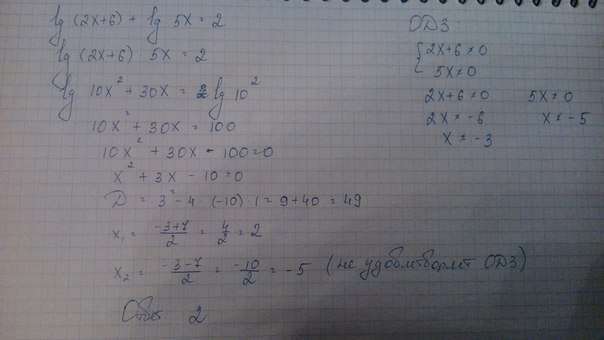 lg (2x+6) + lg 5x = 2
lg (2x+6) 5x = 2
lg 10x² + 30x = 2 lg 10²
10x² + 30x = 100
10x² + 30x - 100 = 0
x² + 3x - 10 = 0
D = 3² - 4 · (-10) · 1 = 9 + 40 = 49
x₁ = \frac{-3+7}{2} = \frac{4}{2} = 2
x₂ = \frac{-3-7}{2} = \frac{-10}{2} = -5 (не удовлетворяет ОДЗ)
Ответ 2
ОДЗ
{ 2x+6 ≠ 0
5x ≠ 0
2x+6 ≠ 0 5x ≠ 0
2x ≠ -6 x ≠ -5
x ≠ -3